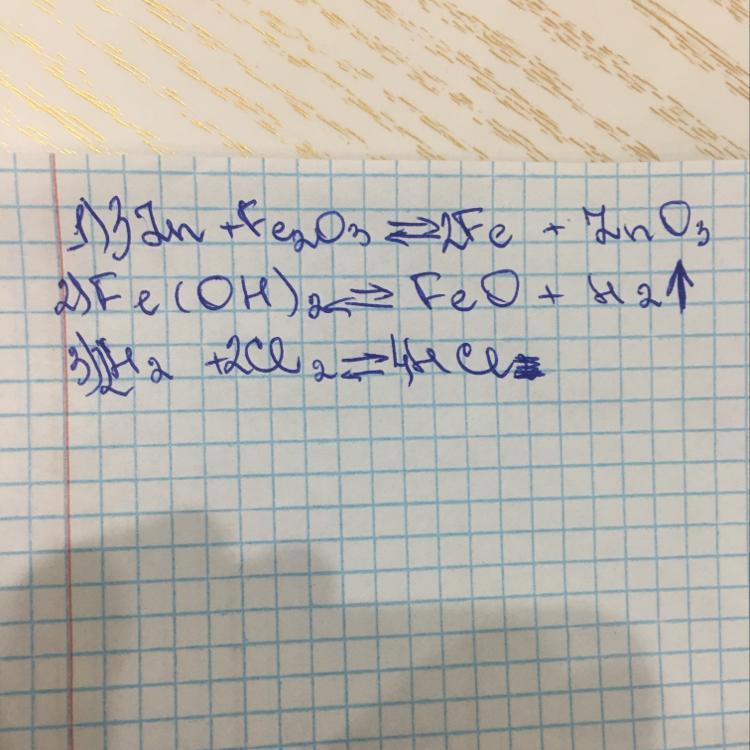 1) 3Zn + Fe₂O₃ ⇄ 2Fe + ZnO₃
2) Fe(OH)₂ ⇄ FeO + H₂↑
3) 2H₂ + 2Cl₂ ⇄ 4HCl